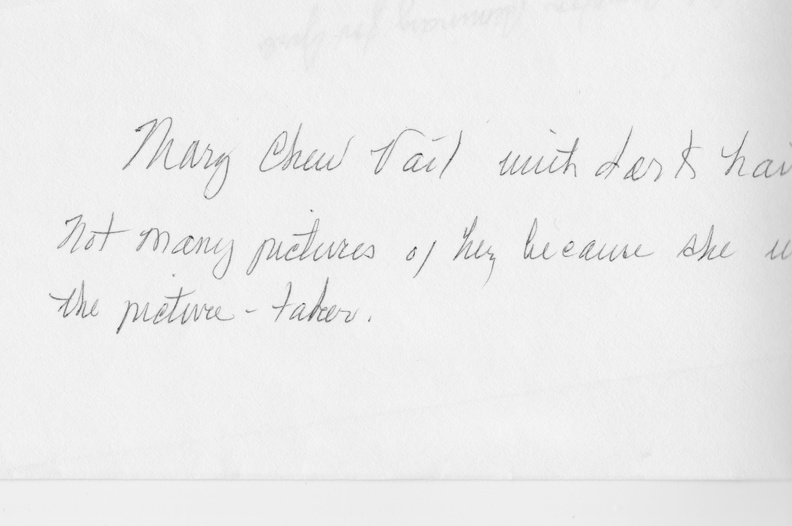 Mary Chew Vail with dark hai
Not many pictures of her, because she w
the picture-taker.